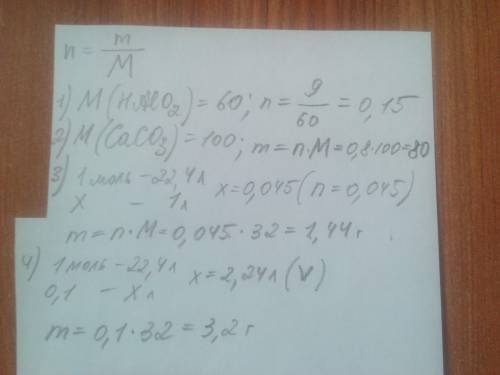 n = m/M
1) M(HAlO₂) = 60; n = 9/60 = 0,15
2) M(CaCO₃) = 100; m = n·M = 0,8·100 = 80
3) 1 моль – 22,4 л
x – 1 л x = 0,045 (n = 0,045)
m = n·M = 0,045·32 = 1,44 г
4) 1 моль – 22,4 л
0,1 – x л x = 2,24 л (V)
m = 0,1·32 = 3,2 г